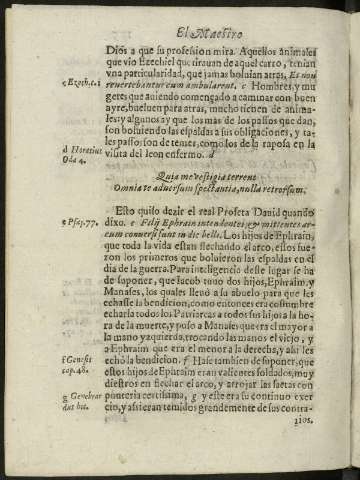 El Maestro
Dios a que su profession mira. Aquellos animales
que vio Ezechiel que tirauan de aquel carro, tenian
vna particularidad, que jamas boluian atras, Et non
c Ezech.c.1
reuertebantur cum ambularent. c Hombres, y mu
geres que auiendo començado a caminar con buen
ayre, bueluen para atras, mucho tienen de anima-
les: y algunos ay que los mas de los passos que dan,
son boluiendo las espaldas a sus obligaciones, y ta-
les passos son de temer, como los de la raposa en la
d Horatius
Oda 4.
visita del leon enfermo. d
Quia me vestigia terrent
Omnia te aduersum spectantia, nulla retrorsum.
Esto quiso dezir el real Profeta Dauid quando
e Psa. 77.
dixo. e Filij Ephrain intendentes, & mittentes ar-
cum conuersi sunt in die belli. Los hijos de Ephrain,
que toda la vida estan flechando el arco, essos fue-
ron los primeros que boluieron las espaldas en el
dia de la guerra. Para inteligencia deste lugar se ha
de suponer, que Iacob tuuo dos hijos, Ephraim, y
Manases, los quales lleuò a su abuelo para que les
echasse la bendicion, como entonces era costumbre
echarla todos los Patriarcas a todos sus hijos a la ho-
ra de la muerte, y puso a Manases que era el mayor a
la mano yzquierda, trocando las manos el viejo, y
a Ephraim que era el menor a la derecha, y assi les
f Genesis
cap. 48.
echò la bendicion. f Hase tambien de suponer, que
estos hijos de Ephraim eran valientes soldados, muy
diestros en flechar el arco, y arrojar las saetas con
g Genebrar
dus hic.
punteria certissima, g y este era su continuo exer
cio, y assi eran temidos grandemente de sus contra-
rios,